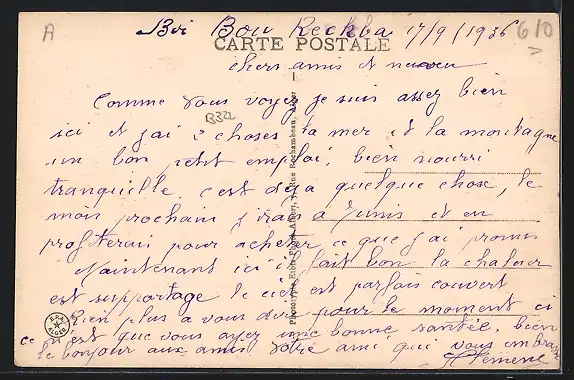 A
Bir Bou Reckba 17/9/1936
610
CARTE POSTALE
chers amis et neveu
Comme vous voyez je suis assez bien
B332
ici et j'ai 2 choses la mer et la montagne
un bon petit emploi, bien nourri
tranquille, c'est deja quelque chose, le
mois prochain j'irai a Tunis et en
profiterai pour acheter ce que j'ai promis
Maintenant ici il fait bon la chaleur
est supportage le ciel est parfois couvert
Rien plus a vous dire pour le moment ci
ce n'est que vous ayez une bonne santée. bien
le bonjour aux amis votre ami qui vous embrasse
Clement
Phototypie Réns. Photo Albert, 7, Rue Rochambeau, Alger
EPA
ALGER